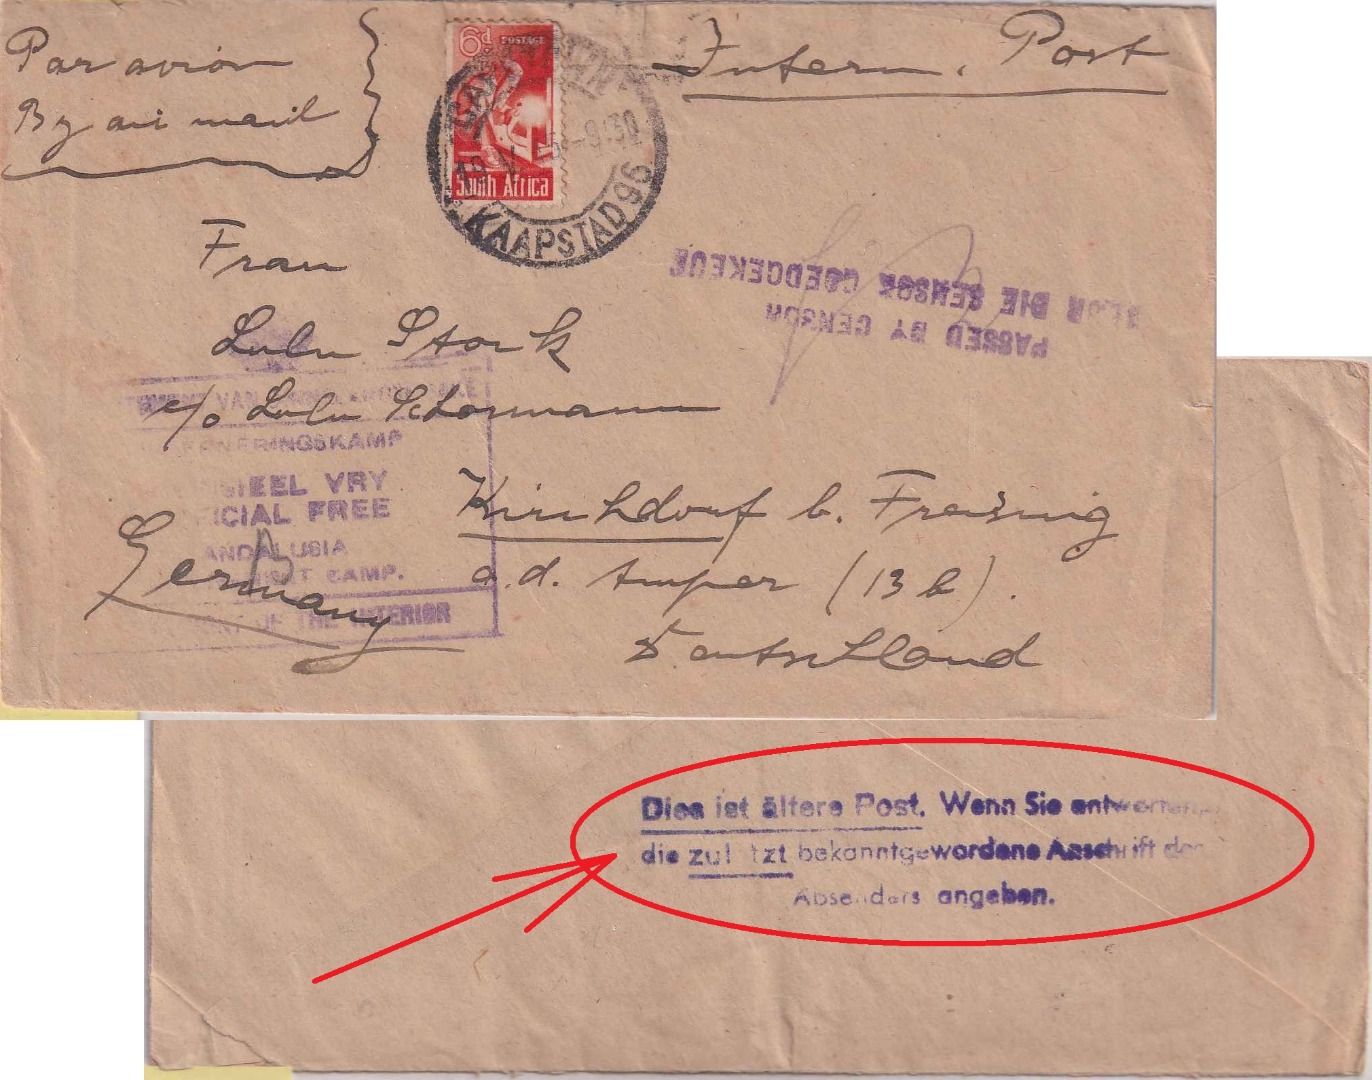 Par avion
By air mail
6d. POSTAGE
South Africa
KAAPSTAD 96
-9:30
Intern. Post
Frau
Lulu Stork
c/o Lulu Schormann
Kirchdorf b. Freising
a.d. Amper (13b).
Deutschland
Germany
PASSED BY CENSOR
DEUR DIE SENSOR GOEDGEKEUR
VAN
KAMP
VRY
FREE
ANDALUSIA
CAMP.
OF THE INTERIOR
Dies ist ältere Post. Wenn Sie antworten
die bekanntgewordene Anschrift des
Absenders angeben.